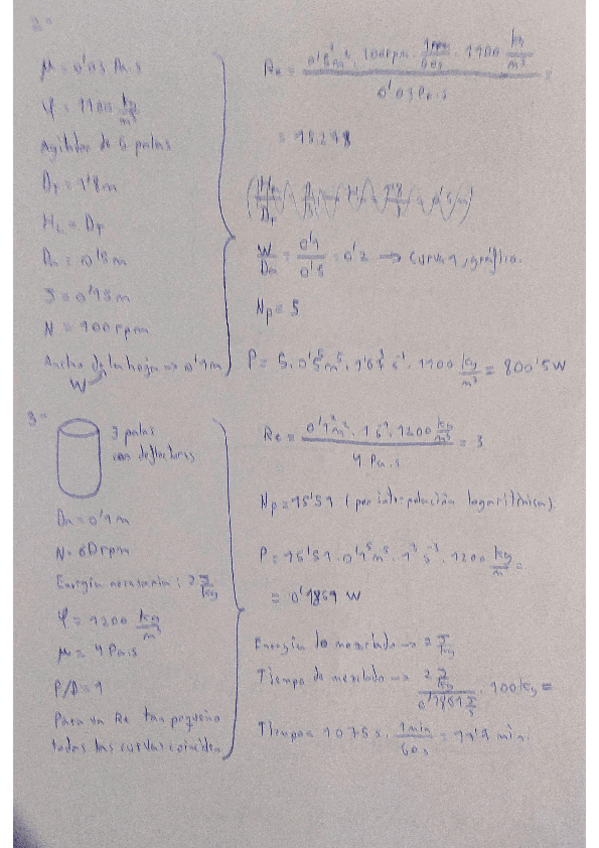 2º
μ = 0'03 Pa.s
φ = 1100 kg/m³
Agitador de 6 palas
D_T = 1'8 m
H_L = D_T
Da = 0'5 m
J = 0'15 m
N = 100 rpm
Ancho de la hoja => 0'1 m
W
Re = (0'5² m². 100 rpm. 1 rps/60 s. 1100 kg/m³) / 0'03 Pa.s =
= 15278
W/Da = 0'1/0'5 = 0'2 → curva 1, gráfico.
Np = 5
P = 5. 0'5⁵ m⁵. 1'67³ s⁻³. 1100 kg/m³ = 800'5 W
3º
3 palas
con deflectores
Da = 0'1 m
N = 60 rpm
Energía necesaria: 2 J/kg
φ = 1200 kg/m³
μ = 4 Pa.s
P/D = 1
Para un Re tan pequeño
todas las curvas coinciden
Re = (0'1² m². 1 s⁻¹. 1200 kg/m³) / 4 Pa.s = 3
Np = 15'51 (por interpolación logarítmica).
P = 15'51. 0'1⁵ m⁵. 1³ s⁻³. 1200 kg/m³ =
= 0'1861 W
Energía de mezclado → 2 J/kg
Tiempo de mezclado → (2 J/kg) / (0'1861 J/s). 100 kg =
Tiempo = 1075 s. 1 min/60 s = 17'9 min.